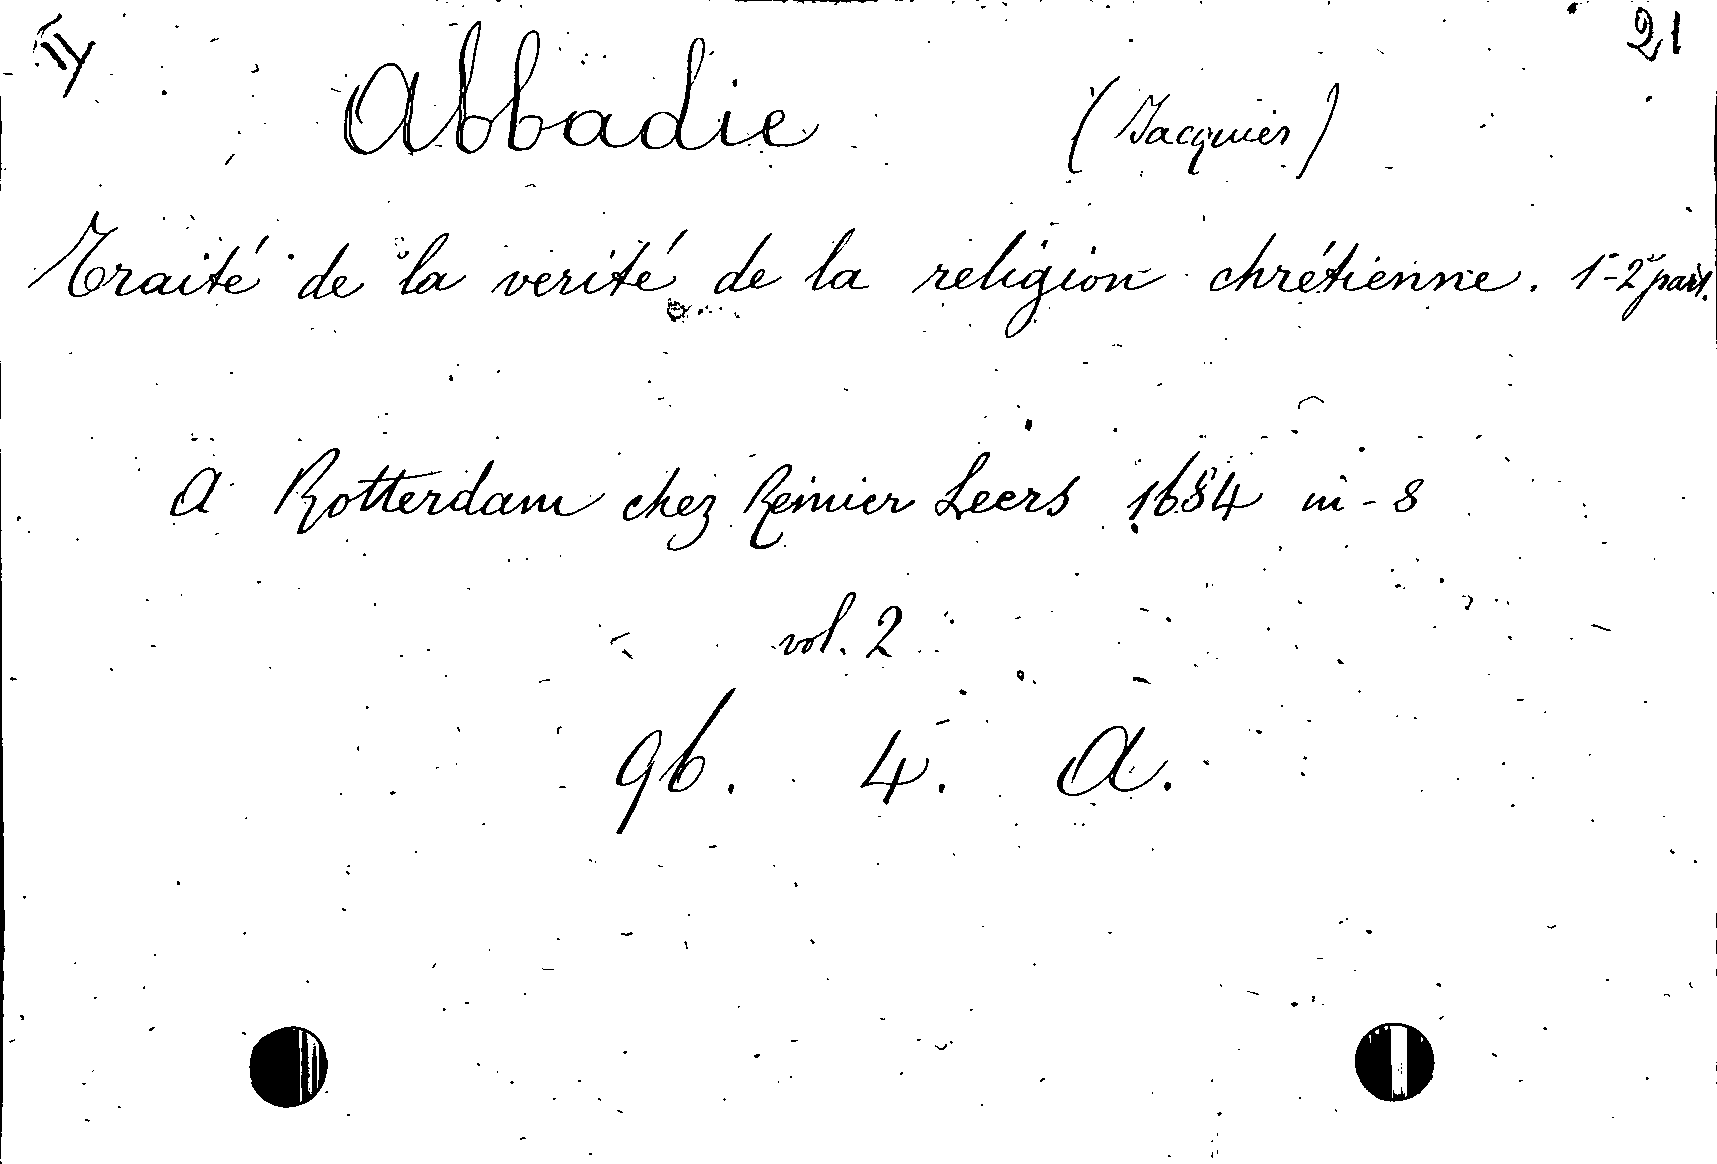 II 21
Abbadie (Jacquier)
Traité de la verité de la religion chrétienne. 1-2 part.
A Rotterdam chez Reinier Leers 1684 in-8
vol. 2
96. 4. A.